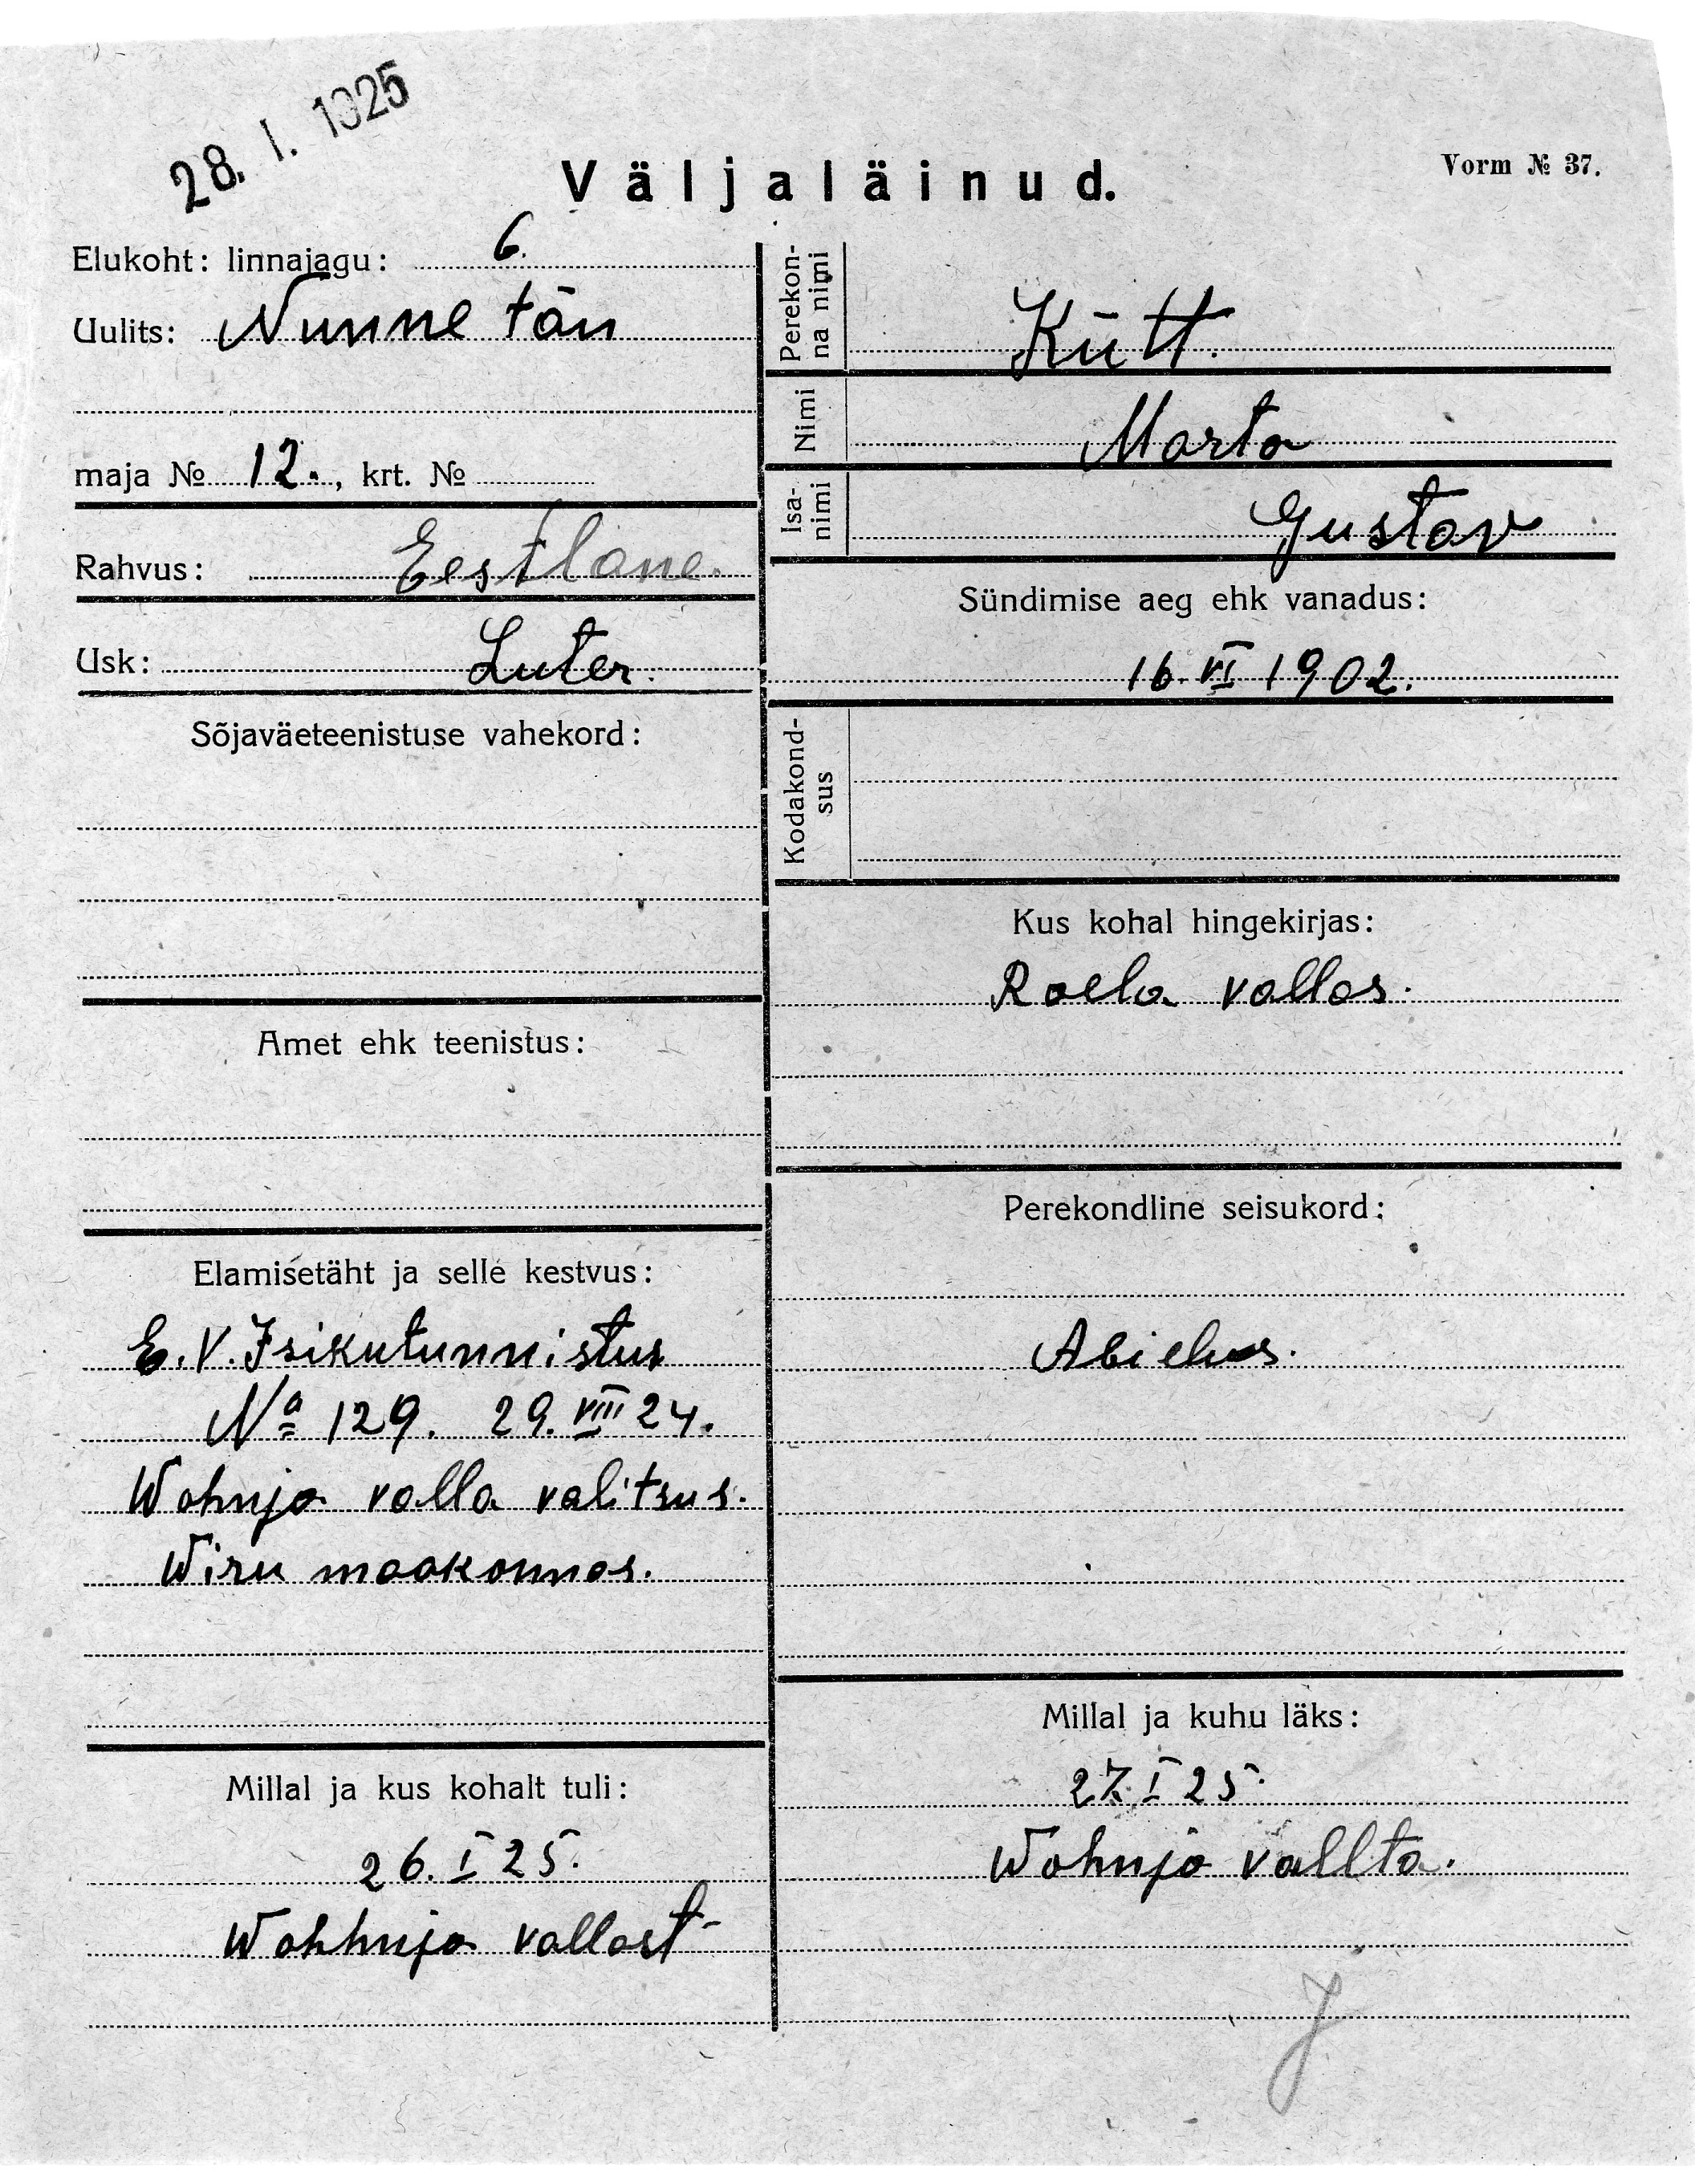 28. I. 1925
Väljaläinud.
Vorm № 37.
Elukoht: linnajagu: 6.
Uulits: Nunne tän
maja № 12., krt. №
Rahvus: Eestlane.
Usk: Luter.
Sõjaväeteenistuse vahekord:
Amet ehk teenistus:
Elamisetäht ja selle kestvus:
E.V. Isikutunnistus
Nº 129. 29. VIII 24.
Wohnja valla valitsus.
Wiru maakonnas.
Millal ja kus kohalt tuli:
26. I 25.
Wohhnja vallast
Perekonna nimi Kütt.
Nimi Marta
Isanimi Gustav
Sündimise aeg ehk vanadus:
16. VI 1902.
Kodakondsus
Kus kohal hingekirjas:
Roela vallas.
Perekondline seisukord:
Abielus.
Millal ja kuhu läks:
27. I 25.
Wohnja vallta.
J